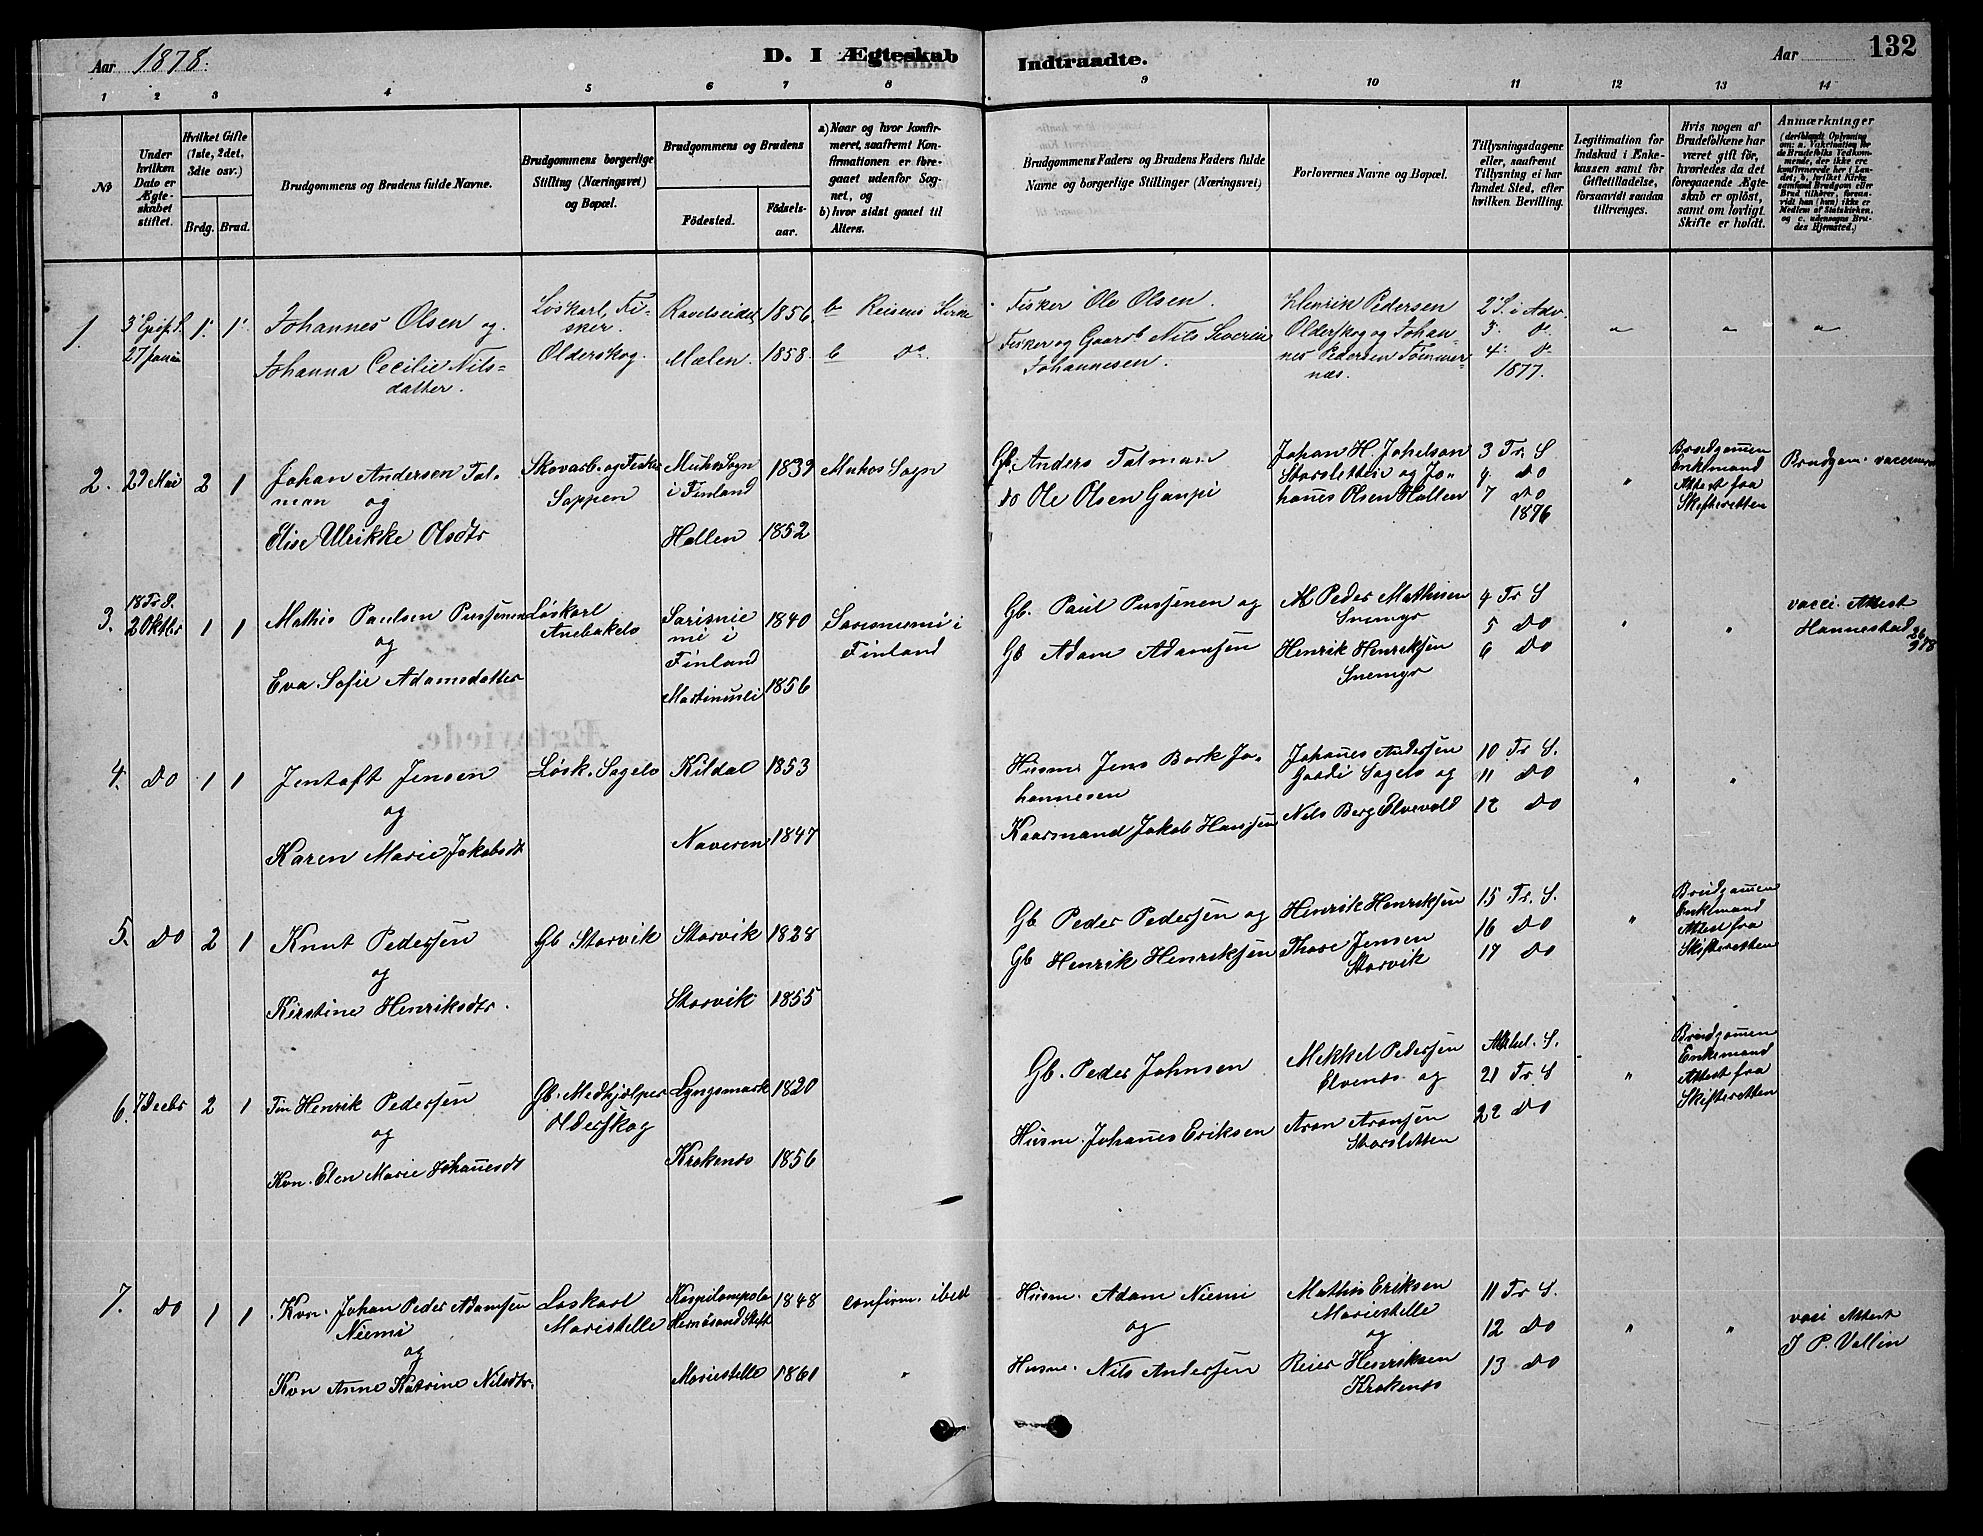 Aar 1878.
D. I Ægteskab Indtraadte.
Aar
132
1 2 3 4 5 6 7 8 9 10 11 12 13 14
No
Under hvilken Dato er Ægteskabet stiftet.
Hvilket Gifte (1ste, 2det, 3die osv.)
Brdg. Brud.
Brudgommens og Brudens fulde Navne.
Brudgommens borgerlige Stilling (Næringsvei) og Bopæl.
Brudgommens og Brudens
Fødested.
Fødselsaar.
a) Naar og hvor konfirmeret, saafremt Konfirmationen er foregaaet udenfor Sognet, og
b) hvor sidst gaaet til Alters.
Brudgommens Faders og Brudens Faders fulde Navne og borgerlige Stillinger (Næringsvei)
Forlovernes Navne og Bopæl.
Tillysningsdagene eller, saafremt Tillysning ei har fundet Sted, efter hvilken Bevilling.
Legitimation for Indskud i Enkekassen samt for Giftetilladelse, forsaavidt saadan tiltrænges.
Hvis nogen af Brudefolkene har været gift før, hvorledes da det foregaaende Ægteskab er opløst, samt om lovligt Skifte er holdt.
Anmærkninger (deriblandt Oplysning om: a. Vaksination for de Brudefolks Vedkommende, der ikke ere konfirmerede her i Landet; b. hvilket Kirkesamfund Brudgom eller Brud tilhører, forsaavidt han (hun) ikke er Medlem af Statskirken, og c. udensogns Brudes Hjemsted.)
1. 3 Epif. S. 27 Januar 1. 1.
Johannes Olsen og
Johanna Cecilie Nilsdatter.
Løskarl, Fisker. Olderskog.
Ravelseidet 1856. b Reisens Kirke
Mælen. 1858. b Do
Fisker Ole Olsen.
Fisker og Gaardb Nils Severin Johannesen.
Henrik Pedersen Olderskog og Johannes Pedersen Tømmernæs.
2 S. i Adv. 3. D. 4. D. 1877.
" " "
2. 29 Mai 2 1
Johan Andersen Talman og
Elise Ulrikke Olsdtr
Skovarb. og Fisker Sappen
Muhos Sogn i Finland 1839 Muhos Sogn
Hallen 1852
Gb. Anders Talman
Do Ole Olsen Ganpi
Johan H. Johelson Storsletten og Johanes Olsen Hallen
3 Tr. S 4 Do 7 Do 1876
"
Brudgomen Enkemand Attest fra Skifteretten
Brudgom. vaccineret
3. 18 Tr S. 2 Oktbr 1 1
Mathis Paulsen Pussjenen og
Eva Sofie Adamsdatter
Løskarl Anebakels
Sarisniemi i Finland 1840 Sarisniemi i Finland
Martinusli 1856
Gb. Paul Pussjenen og
Gb Adam Adamsen
M Peder Mathisen Snemyr
Henrik Henriksen Snemyr
4 Tr S 5 Do 6 Do
" "
vacci. Attest Hannestad 26/9 78
4. Do 1 1
Jentoft Jensen og
Karen Marie Jakobsdt
Løsk. Sagels
Kildal 1853
Naveren 1847
Husm. Jens Bork Johannesen
Kaarmand Jakob Hansen
Johanes Andersen Gardi Sagels og
Nils Berg Elvevold
10 Tr S. 11 Do 12 Do
" "
5. Do 2 1
Knut Pedersen og
Kirstine Henriksdtr.
Gb Storvik
Storvik 1828
Storvik 1855
Gb Peder Pedersen og
Gb Henrik Henriksen
Henrik Henriksen
Thore Jensen Storvik
15 Tr. S. 16 Do 17 Do
"
Brudgomen Enkemand Attest fra Skifteretten
6. 7 Decbr 2 1
Fin Henrik Pedersen og
Kvn. Elen Marie Johanesdt
Gb. Medhjælper Olderskog
Lyngsmark 1820
Krakenes 1856
Gb. Peder Johnsen
Husm. Johanes Eriksen
Mekkel Pedersen Elvenes og
Aron Aronsen Storsletten
Allhel. S. 21 Tr. S 22 Do
"
Brudgomen Enkemand Attest fra Skifteretten
7. Do 1 1
Kvn. Johan Peder Adamsen Niemi og
Kvn Anne Katrine Nilsdtr.
Løskarl Maristelle
Hernøsand Stift 1848 confirm. ibid
Moriestelle 1861 "
Husm. Adam Niemi og
Husm. Nils Andersen
Mathis Eriksen Mariestelle og
Reier Henriksen Krakenes
11 Tr S. 12 Do 13 Do
" "
vaci Attest J P. Vallin